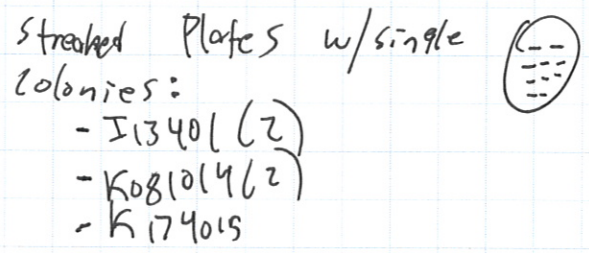 Streaked Plates w/single
Colonies:
- I13401 (2)
- K081014 (2)
- K174015